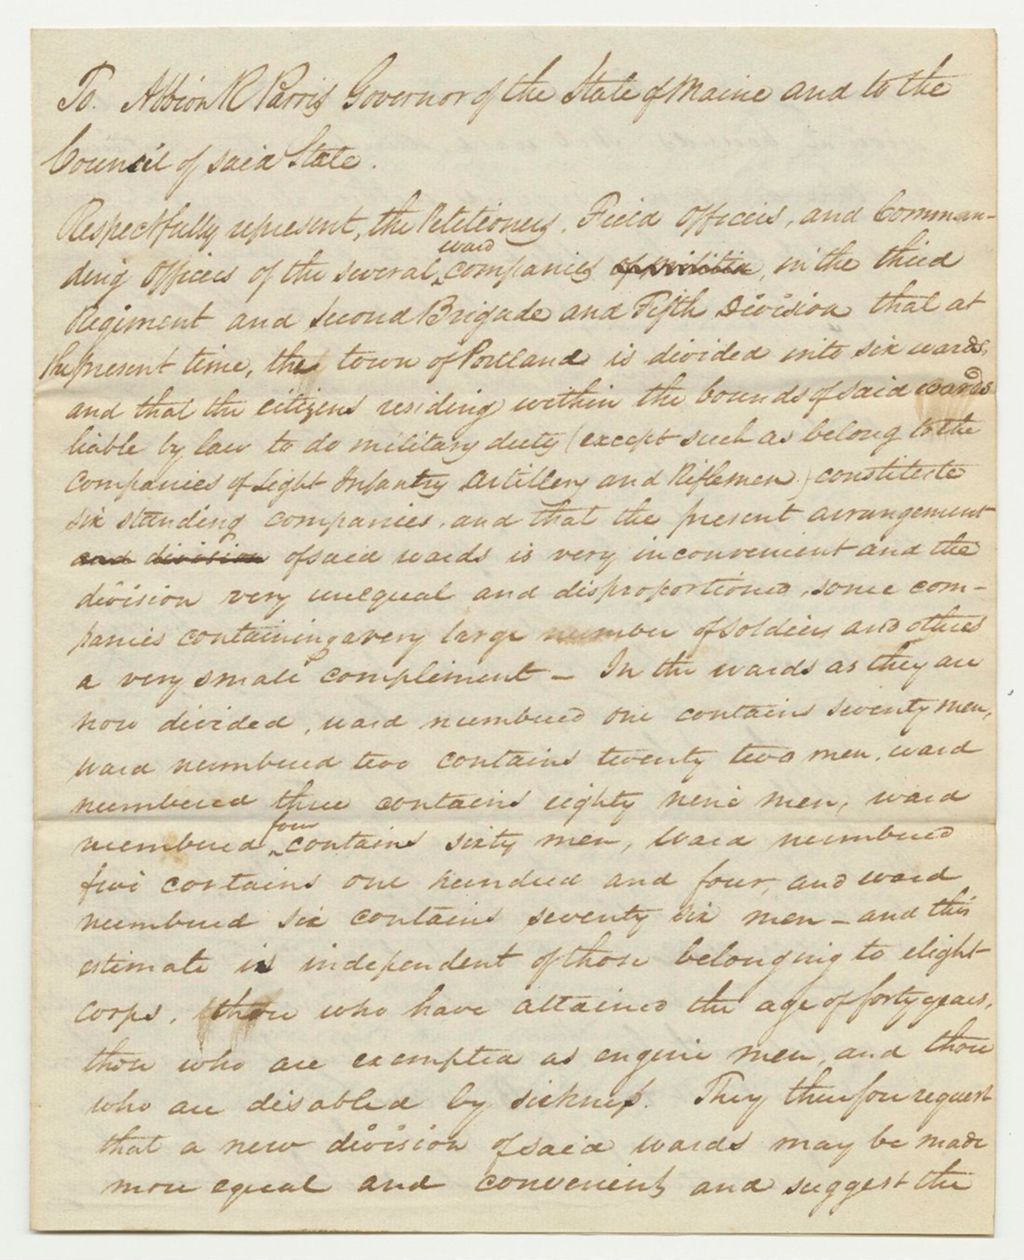 To. Albion K Parris Governor of the State of Maine and to the
Council of said State.
Respectfully represent, the Petitioners, Field Officers, and Comman-
ding Officers of the several ward companies of militia, in the third
Regiment and Second Brigade and Fifth Division that at
the present time, the town of Portland is divided into six wards,
and that the citizens residing within the bounds of said wards
liable by law to do military duty (except such as belong to the
companies of Light Infantry Artillery and Riflemen) constitute
six standing companies, and that the present arrangement
and division of said wards is very inconvenient and the
division very unequal and disproportioned, some com-
panies containing a very large number of soldiers and others
a very small compliment - In the wards as they are
now divided, ward numbered one contains seventy men,
ward numbered two contains twenty two men, ward
numbered three contains eighty nine men, ward
numbered four contains sixty men, ward numbered
five contains one hundred and four, and ward
numbered six contains seventy six men - and this
estimate is independent of those belonging to elight
corps, those who have attained the age of forty years,
those who are exempted as engine men, and those
who are disabled by sickness. They therefore request
that a new division of said wards may be made
more equal and convenient, and suggest the